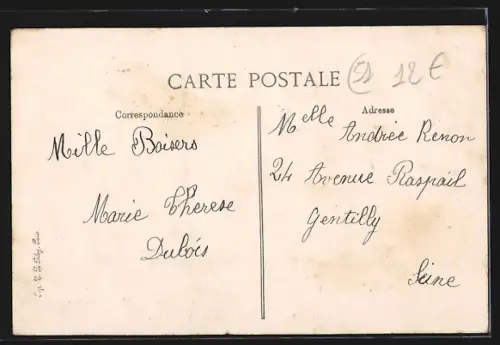 CARTE POSTALE
12 €
Correspondance
Mille Baisers
Marie Therese
Dubois
Adresse
Melle Andrée Renon
24 Avenue Raspail
Gentilly
Seine